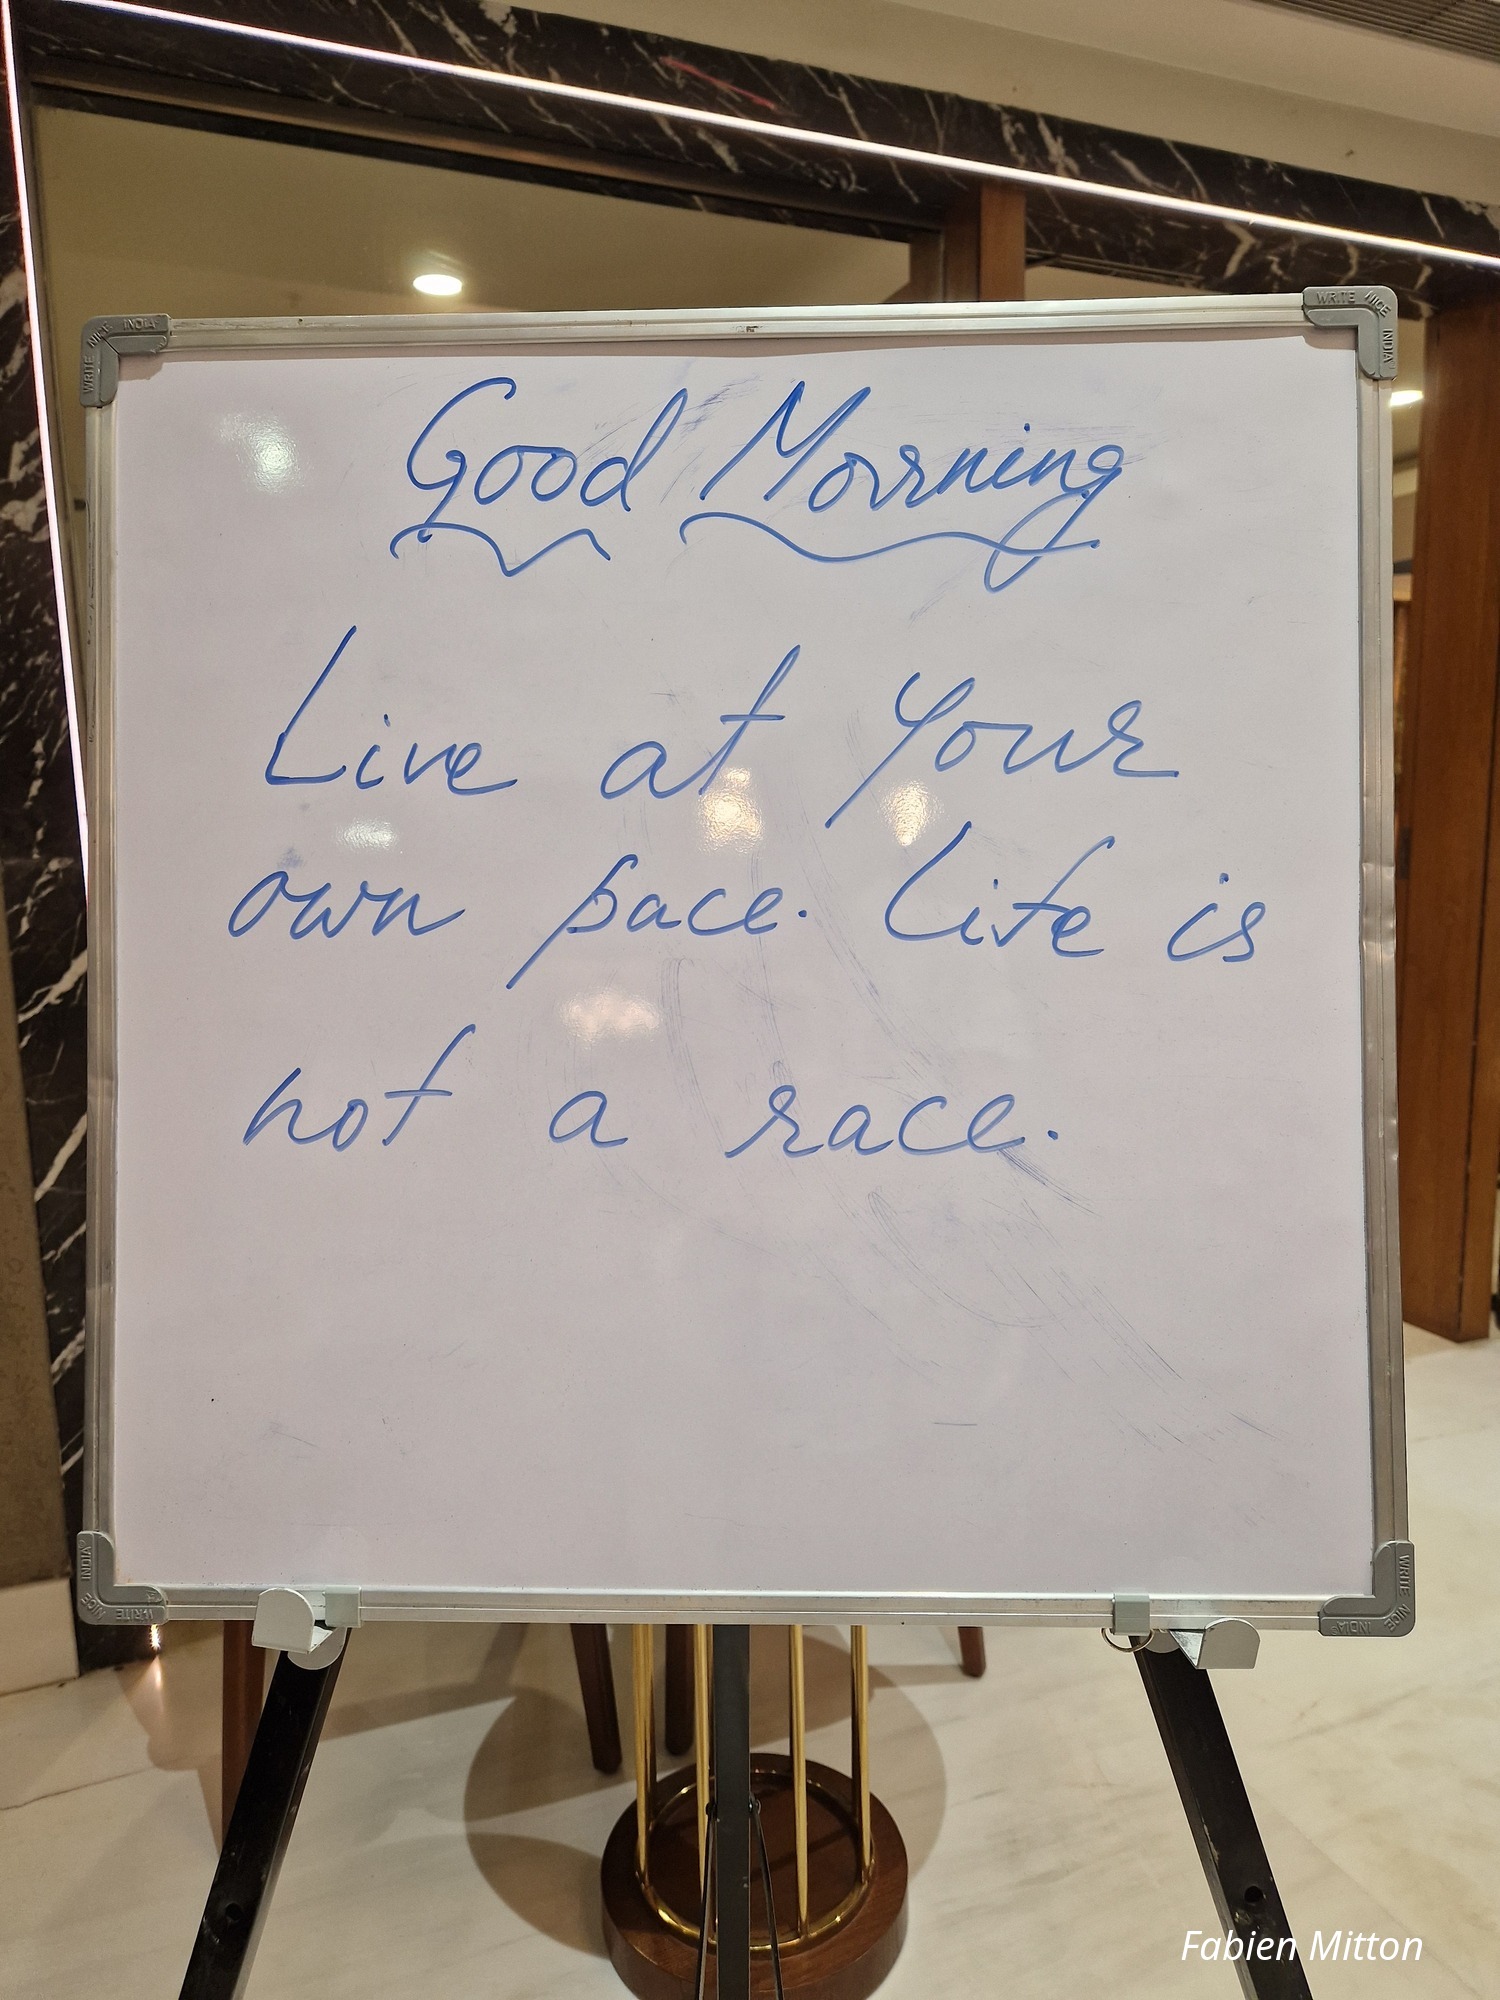 WRITE NICE INDIA
WRITE NICE INDIA
Good Morning
Live at your
own pace. Life is
not a race.
WRITE NICE INDIA
WRITE NICE INDIA
Fabien Mitton